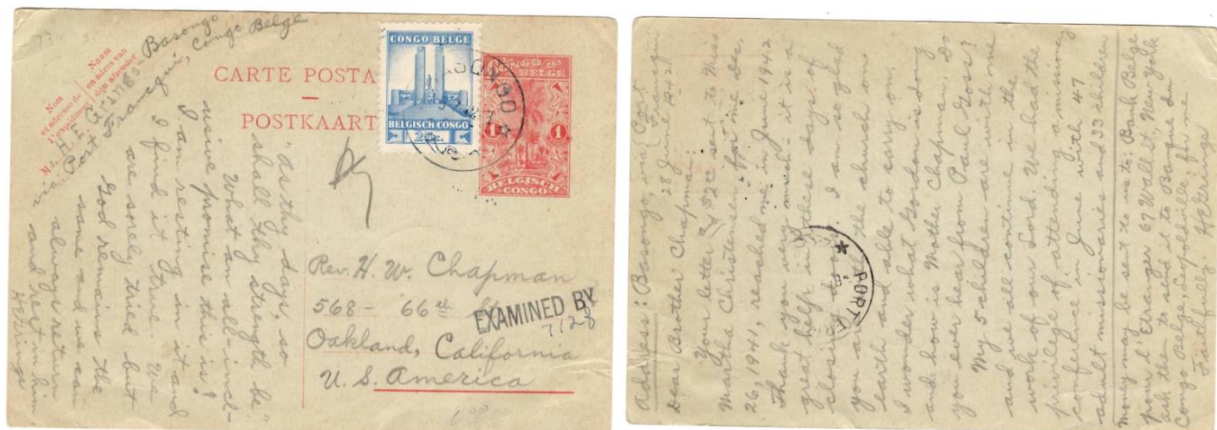 Nom
et adresse de
l'expéditeur
Naam
en adres van
den afzender
M
H.E. Grings - Basongo
via Port Francqui, Congo Belge
CARTE POSTA
POSTKAART
CONGO BELGE
BELGISCH CONGO
BELGE
1
1
BELGISCH
CONGO
"as thy days, so
shall thy strength be."
What an all-incl-
usive promise this is!
I am resting in it and
I find it true. We
are sorely tried but
God remains the
same and we can
always return
and rest in him
HEGrings
Rev. H. W. Chapman
568 - 66th St.
Oakland, California
U. S. America
EXAMINED BY
7128
Address: Basongo, via Port
Francqui
28 June 1942
Dear Brother Chapman:
Your letter, $52.00 sent to Miss
Martha Christensen for me Dec.
26, 1941, reached me in June 1942.
Thank you very much - it is a
great help in these days of
closing I am sure
you and the church are on
earth and able to carry on.
I wonder what Gordon is doing
and how is Mother Chapman and Do
you ever hear from Paul Goss?
My 5 children are with me
and we all continue in the
work of our Lord. We had the
privilege of attending a missionary
conference in June with 47
adult missionaries and 33 children
money may be sent to us to; Bank Belge
pour l'Etranger 67 Wall St. New York
ask them to send it to Banque du
Congo Belge, Leopoldville, for me
Faithfully HEGrings
PORT